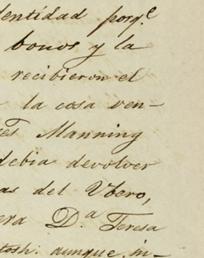 dentidad porq.e
bonos y la
recibieron el
la cosa ven-
Manning
debia devolver
as del Vbero,
era D.a Teresa
tosh: aunque in-